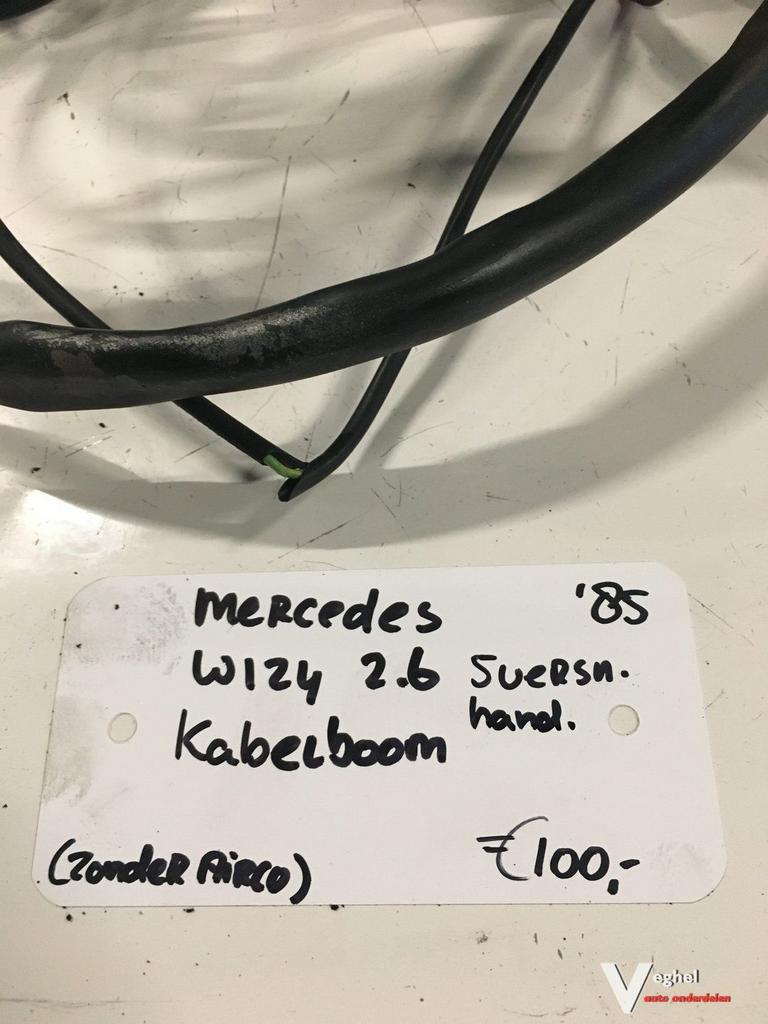 Mercedes '85
W124 2.6 5versn.
hand.
Kabelboom
(Zonder Airco) €100,-
Veghel
auto onderdelen